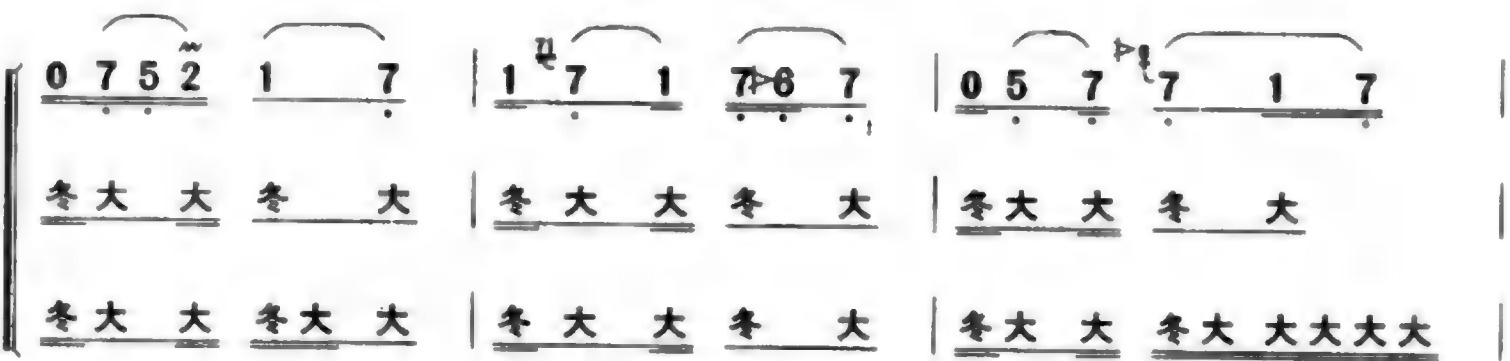 0 7 5 2 1 7 | 1 7 1 7 6 7 | 0 5 7 7 1 7 |
冬 大 大 冬 大 | 冬 大 大 冬 大 | 冬 大 大 冬 大 |
冬 大 大 冬 大 大 | 冬 大 大 冬 大 | 冬 大 大 冬 大 大 大 大 大 |